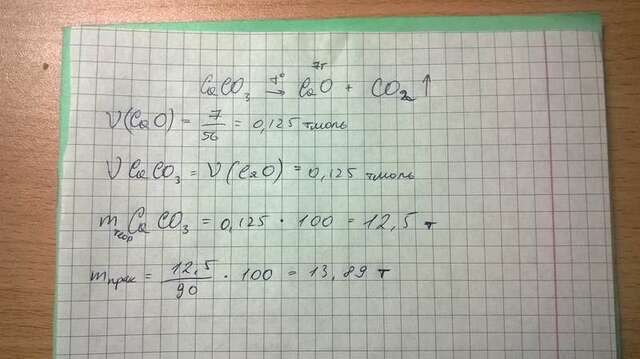 7т
CaCO₃ →(t°) CaO + CO₂ ↑
ν(CaO) = 7/56 = 0,125 тмоль
ν CaCO₃ = ν(CaO) = 0,125 тмоль
m теор CaCO₃ = 0,125 · 100 = 12,5 т
m прак = 12,5/90 · 100 = 13,89 т